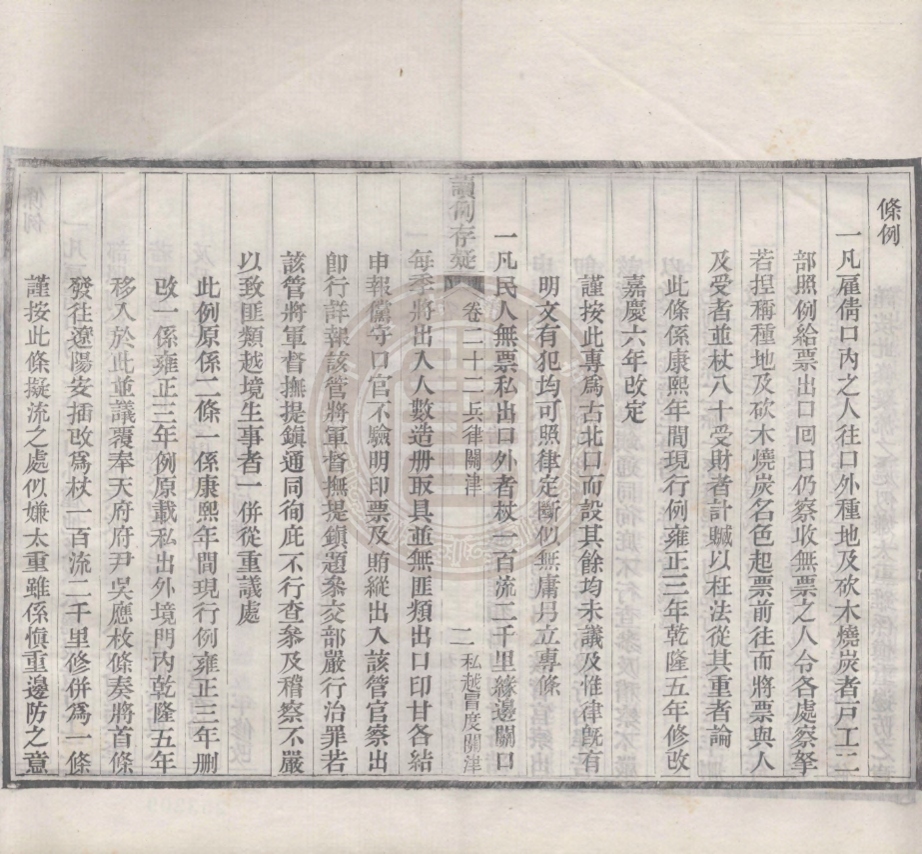 條例
一凡雇倩口內之人往口外種地及砍木燒炭者戸工二
部照例給票出口回日仍察收無票之人令各處察拏
若捏稱種地及砍木燒炭名色起票前往而將票與人
及受者並杖八十受財者計贓以枉法從其重者論
此條係康熙年間現行例雍正三年乾隆五年修改
嘉慶六年改定
謹按此專爲古北口而設其餘均未議及惟律旣有
明文有犯均可照律定斷似無庸另立專條
一凡民人無票私出口外者杖一百流二千里緣邊關口
讀例存疑 卷二十二兵律關津 二 私越冒度關津
每季將出入人數造册取具並無匪類出口印甘各結
申報儻守口官不驗明印票及賄縱出入該管官察出
卽行詳報該管將軍督撫提鎭題參交部嚴行治罪若
該管將軍督撫提鎭通同徇庇不行查參及稽察不嚴
以致匪類越境生事者一併從重議處
此例原係二條一係康熙年間現行例雍正三年刪
改一係雍正三年例原載私出外境門內乾隆五年
移入於此並議覆奉天府府尹吳應枚條奏將首條
發往遼陽安插改爲杖一百流二千里修併爲一條
謹按此條擬流之處似嫌太重雖係愼重邊防之意